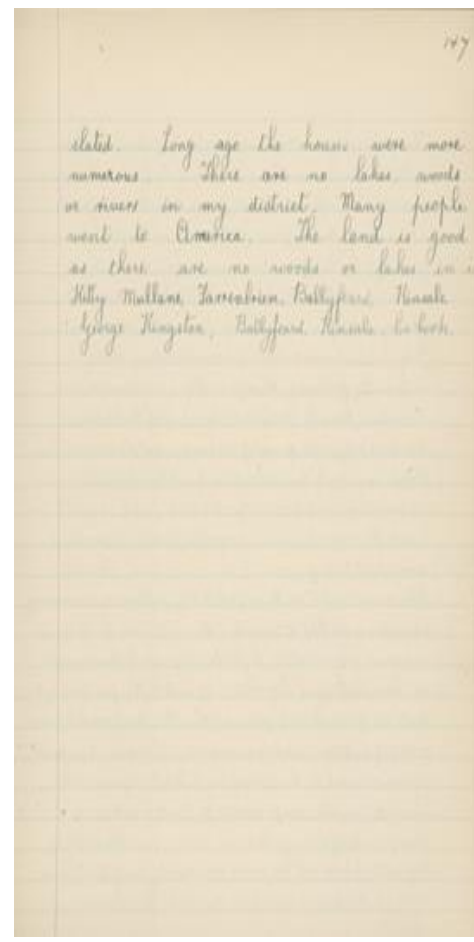 147
slated. Long ago the houses were more
numerous. There are no lakes woods
or rivers in my district. Many people
went to America. The land is good
as there are no woods or lakes in
Kitty Mullane, Ballyfeard Kinsale
George Kingston, Ballyfeard Kinsale Co Cork.